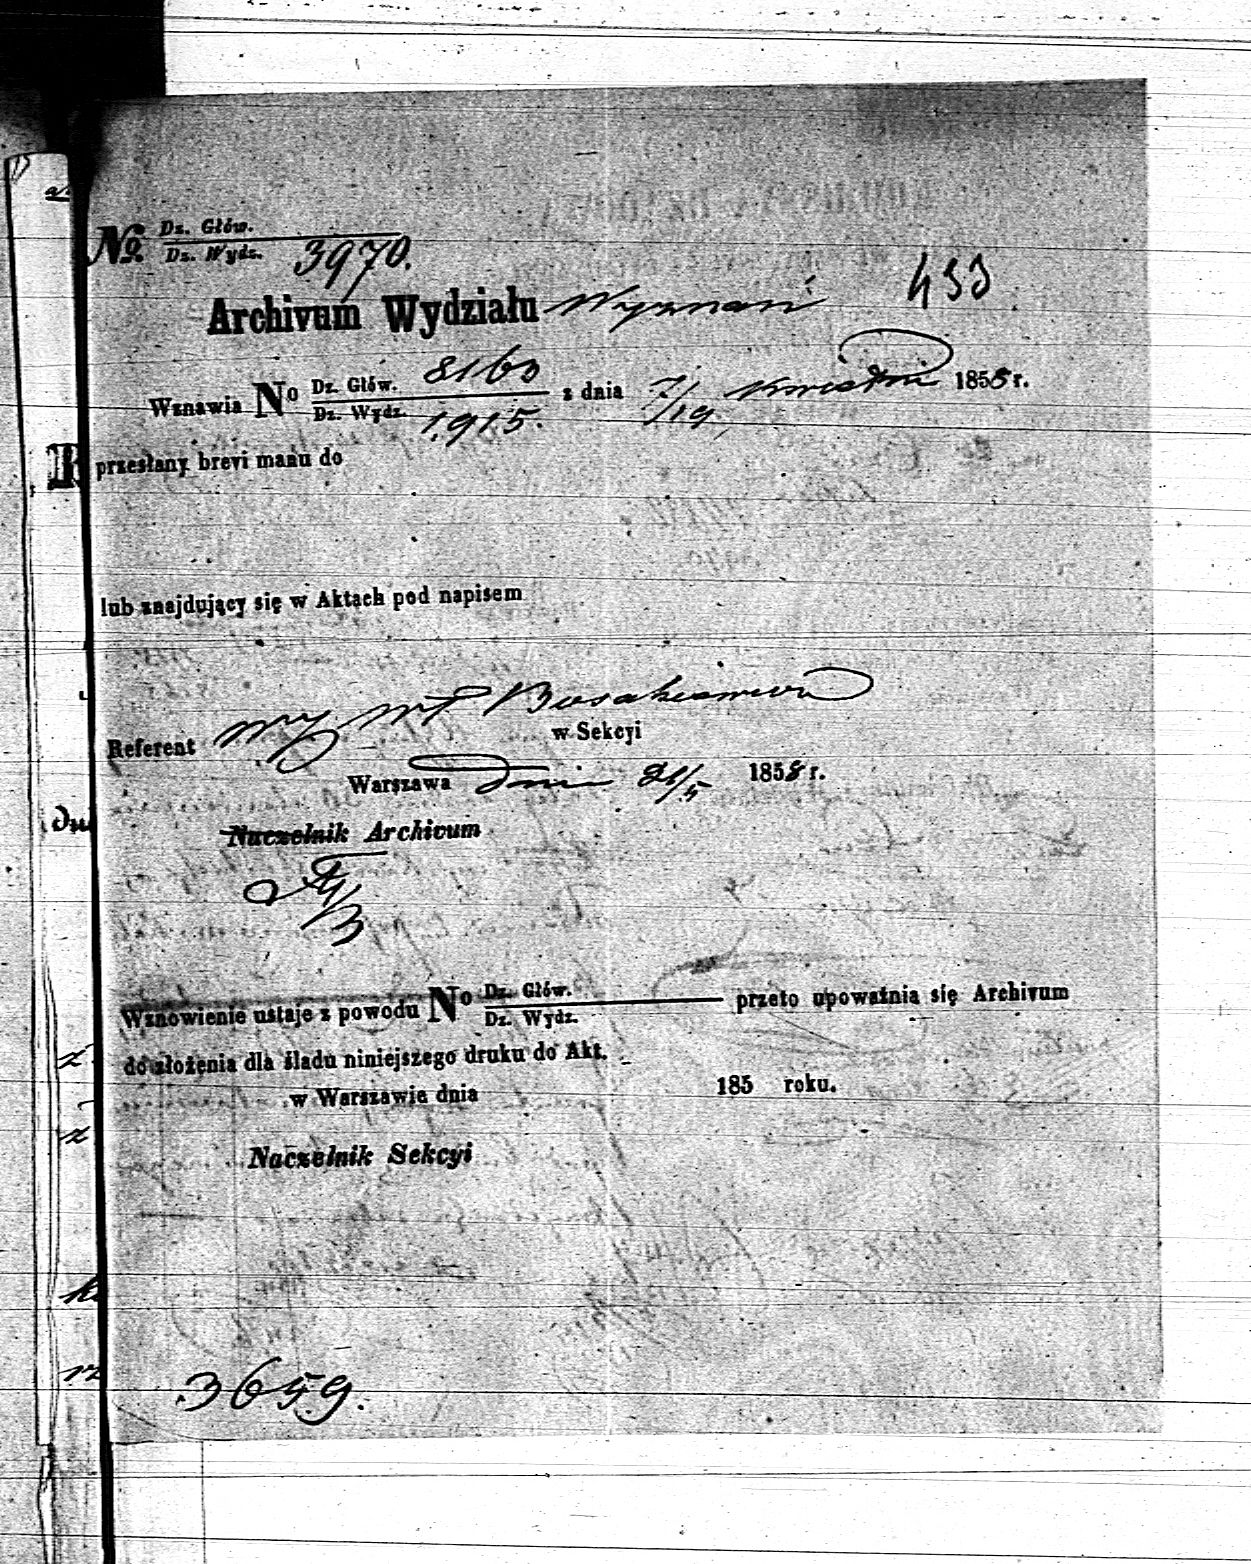 No. Dz. Głów.
Dz. Wydz. 3970.
433
Archivum Wydziału Wyznań
Wznawia No Dz. Głów. 8160 z dnia 7/19 Kwietnia 1858 r.
Dz. Wydz. 1915.
przesłany brevi manu do
lub znajdujący się w Aktach pod napisem
Referent w Sekcyi
Warszawa dnia 21/5 1858 r.
Naczelnik Archivum
Wznowienie ustaje z powodu No Dz. Głów. przeto upoważnia się Archivum
Dz. Wydz.
do złożenia dla śladu niniejszego druku do Akt.
w Warszawie dnia 185 roku.
Naczelnik Sekcyi
3659.